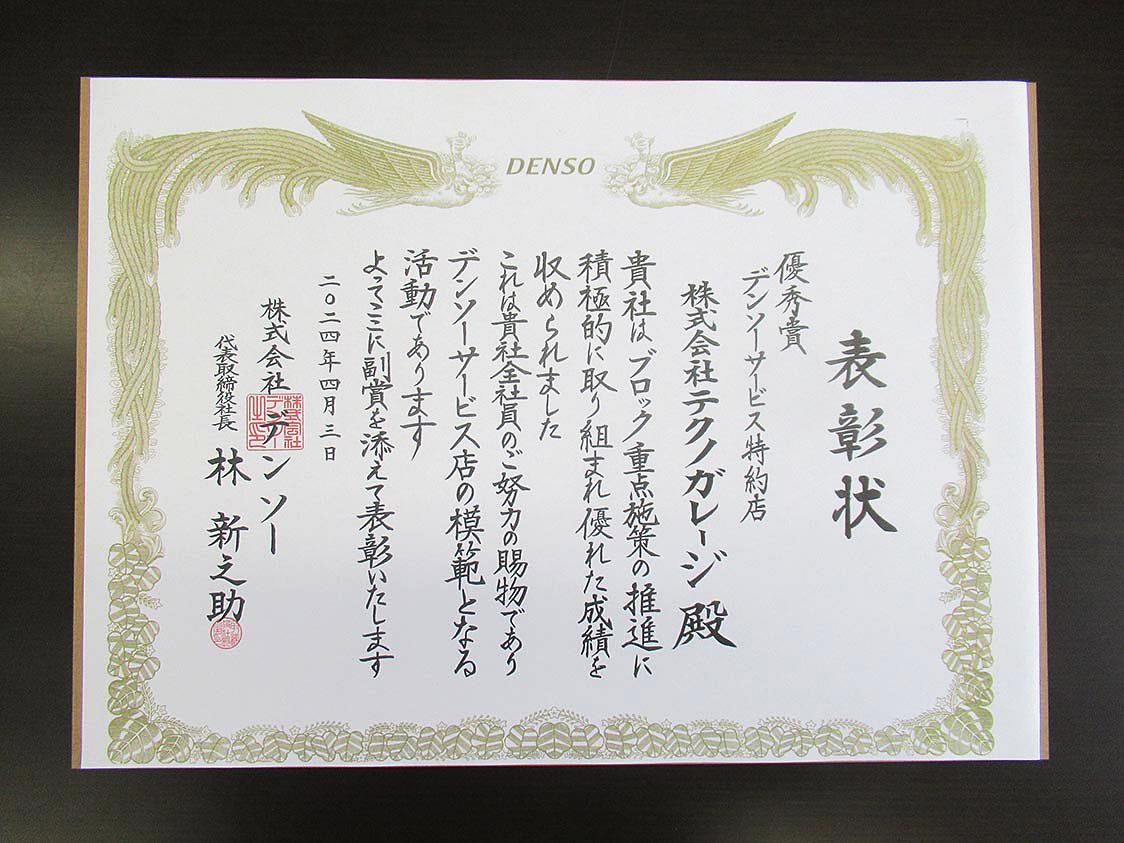 DENSO
表彰状
優秀賞
デンソーサービス特約店
株式会社テクノガレージ殿
貴社はブロック重点施策の推進に
積極的に取り組まれ優れた成績を
収められました
これは貴社全社員のご努力の賜物であり
デンソーサービス店の模範となる
活動であります
よってここに副賞を添えて表彰いたします
二〇二四年四月三日
株式会社デンソー
代表取締役社長 林新之助